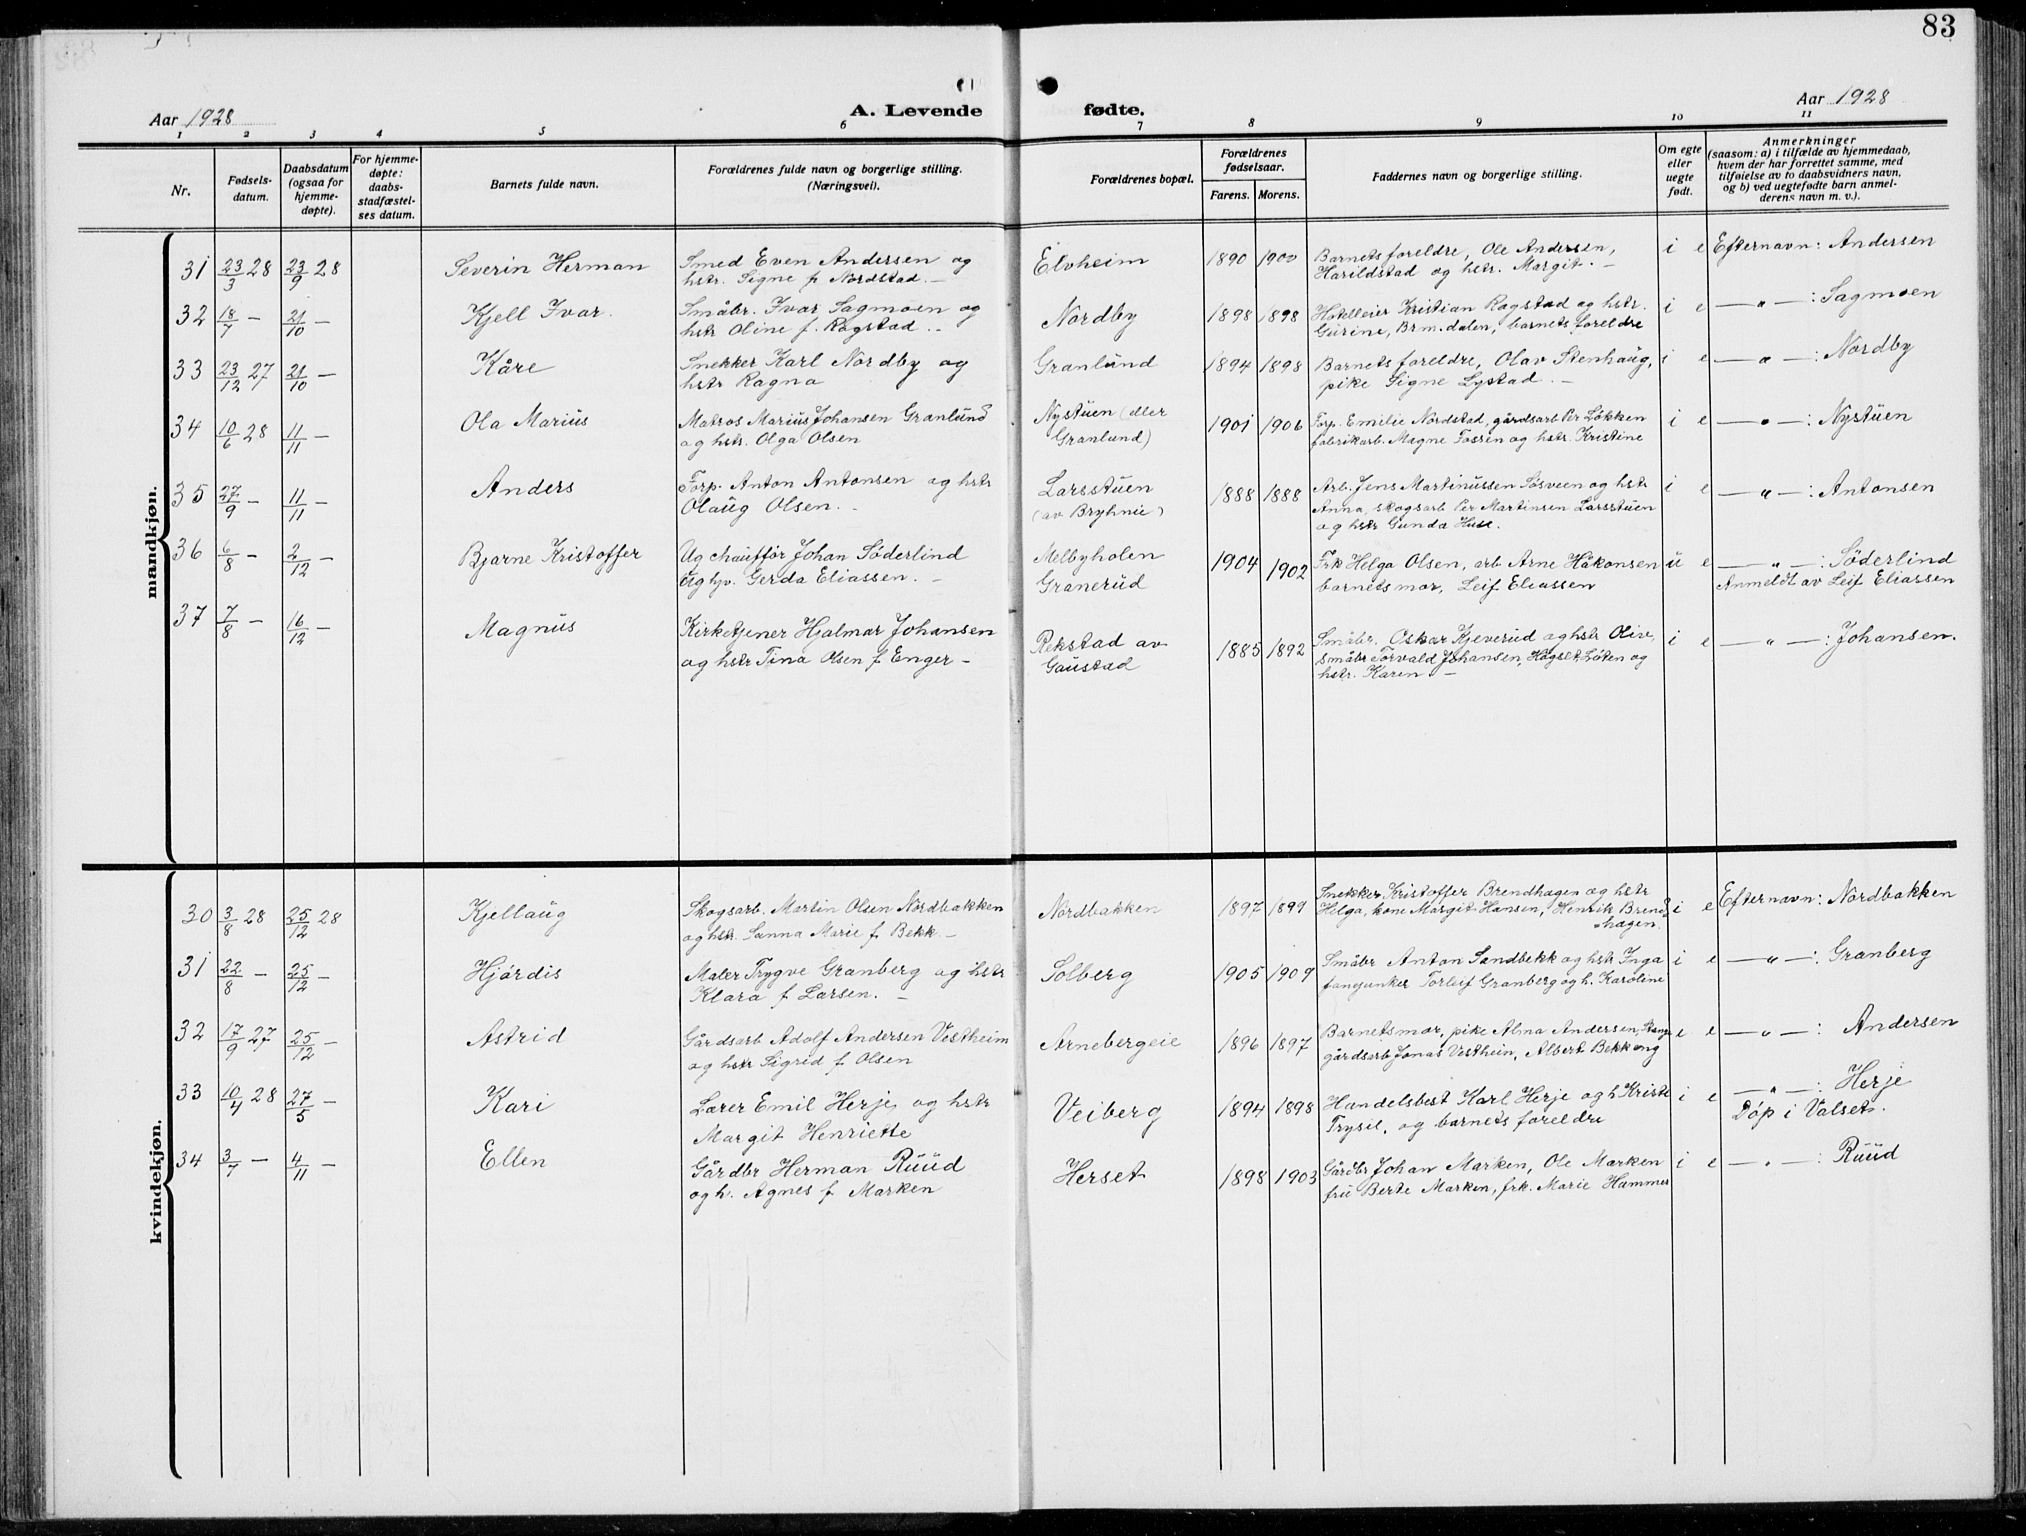 83
Aar 1928
A. Levende fødte.
Aar 1928
1 2 3 4 5 6 7 8 9 10 11
Nr.
Fødsels-
datum.
Daabsdatum
(ogsaa for
hjemme-
døpte).
For hjemme-
døpte:
daabs-
stadfæstel-
ses datum.
Barnets fulde navn.
Forældrenes fulde navn og borgerlige stilling.
(Næringsvei).
Forældrenes bopæl.
Forældrenes
fødselsaar.
Farens. Morens.
Faddernes navn og borgerlige stilling.
Om egte
eller
uegte
født.
Anmerkninger
(saasom: a) i tilfælde av hjemmedaab,
hvem der har forrettet samme, med
tilføielse av to daabsvidners navn,
og b) ved uegtefødte barn anmel-
derens navn m. v.).
mandkjøn.
31 23/3 28 23/9 28 Severin Herman Smed Even Andersen og Elvheim 1890 1900 Barnets foreldre, Ole Andersen, i e Efternavn: Andersen
hstr. Signe f. Nordstad. — Harildstad og hstr. Margit. —
32 18/7 — 21/10 — Kjell Ivar. Småbr. Ivar Sagmoen og Nordby 1898 1898 Hotelleier Kristian Rogstad og hstr. i e — " — : Sagmoen
hstr Oline f. Rogstad. . Gurine, Brm.dalen, barnets foreldre
33 23/12 27 21/10 — Kåre Snekker Karl Nordby og Granlund 1894 1898 Barnets foreldre, Olav Stenhaug, i e — " — : Nordby
hstr Ragna pike Signe Lystad. —
34 10/6 28 11/11 — Ola Marius Matros Marius Johansen Granlund Nystuen (eller 1901 1906 Forp. Emilie Nordstad, gårdsarb Per Løkken i e — " — : Nystuen
og hstr. Olga Olsen Granlund) fabrikarb. Magne Fossen og hstr. Kristine
35 27/9 — 11/11 — Anders Forp. Anton Antonsen og hstr Larsstuen 1888 1888 Arb. Jens Martinussen Søsveen og hstr i e — " — : Antonsen
Olaug Olsen. (av Bryhnie) Anna, skogsarb Per Martinsen Larsstuen
og hstr Gunda Huse.
36 6/8 — 2/12 — Bjarne Kristoffer Ug chauffør Johan Søderlind Melbyholen 1904 1902 Frk Helga Olsen, arb Arne Håkonsen u e — " — : Søderlind
Ughjv. Gerda Eliassen. — Granerud barnets mor, Leif Eliassen Anmeldt av Leif Eliassen
37 7/8 — 16/12 — Magnus Kirketjener Hjalmar Johansen Rekstad av 1885 1892 Småbr. Oskar Kjeverud og hstr Olive, i e — " — : Johansen.
og hstr Tina Olsen f Enger — Gaustad Småbr Torvald Johansen, Høgset, Løten og
hstr. Karen —
kvindekjøn.
30 3/8 28 25/12 28 Kjellaug Skogsarb. Martin Olsen Nordbakken Nordbakken 1897 1899 Snekker Kristoffer Brendhagen og hstr i e Efternavn: Nordbakken
og hstr. Sanna Marie f. Bekk. — Helga, kone Margit Hansen, Henrik Brend-
hagen.
31 22/8 — 25/12 — Hjørdis Maler Trygve Granberg og hstr Solberg 1905 1909 Småbr Anton Sandbekk og hstr Inga i e — " — : Granberg
Klara f Larsen. — fanejunker Torleif Granberg og h. Karoline
32 17/9 27 25/12 — Astrid Gårdsarb Adolf Andersen Vestheim Arnebergeie 1896 1897 Barnets mor, pike Alma Andersen, Stange e e — " — : Andersen
og hstr Sigrid f. Olsen gårdsarb Jonas Vestheim, Albert Bekkeng
33 10/4 28 27/5 — Kari Lærer Emil Herje og hstr Veiberg 1894 1898 Handelsbest Karl Herje og h Kristi i e — " — : Herje
Margit Henriette Trysil, og barnets foreldre Døp i Valset.
34 3/7 — 4/11 — Ellen Gårdbr Herman Ruud Herset 1898 1903 Gårdbr Johan Marken, Ole Marken i e — " — : Ruud
og h. Agnes f Marken fru Berte Marken, frk. Marie Hammer